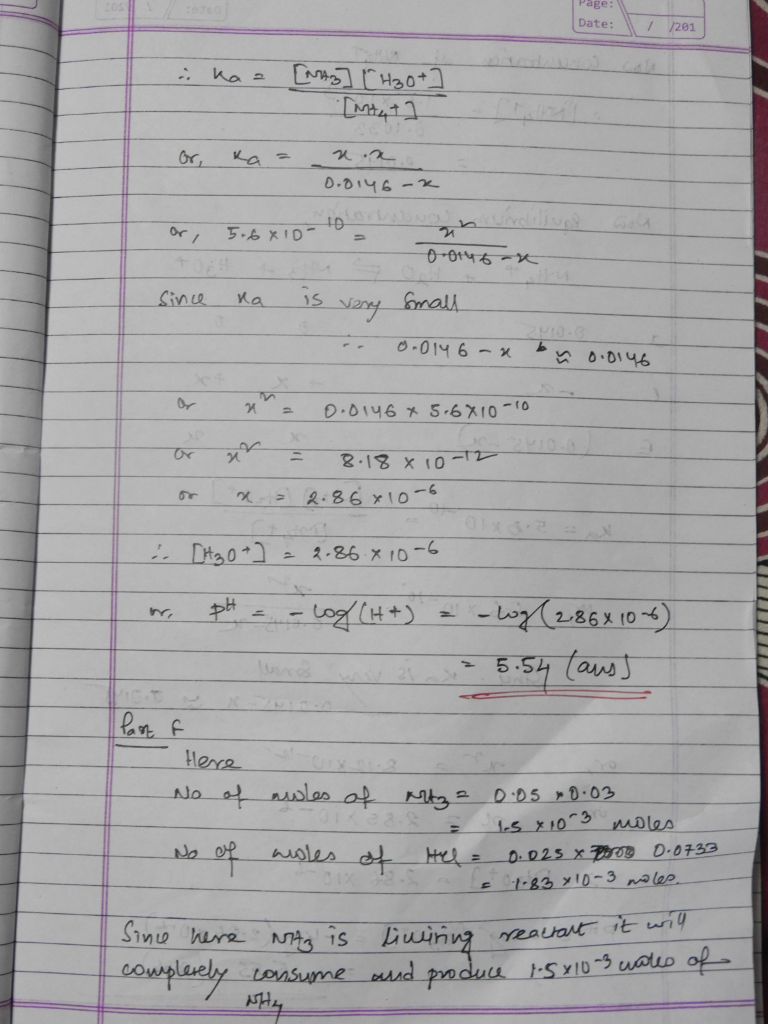 Page:
Date: / /201
∴ Ka = [NH3] [H3O+]
[NH4+]
or, Ka = x . x
0.0146 - x
or, 5.6 x 10-10 = x²
0.0146 - x
Since Ka is very small
∴ 0.0146 - x ≈ 0.0146
or x² = 0.0146 x 5.6 x 10-10
or x² = 8.18 x 10-12
or x = 2.86 x 10-6
∴ [H3O+] = 2.86 x 10-6
or, pH = - log (H+) = - log (2.86 x 10-6)
= 5.54 (ans)
Part f
Here
No of moles of NH3 = 0.05 x 0.03
= 1.5 x 10-3 moles
No of moles of HCl = 0.025 x 0.0733
= 1.83 x 10-3 moles.
Since here NH3 is limiring reactant it will
completely consume and produce 1.5 x 10-3 moles of
NH4